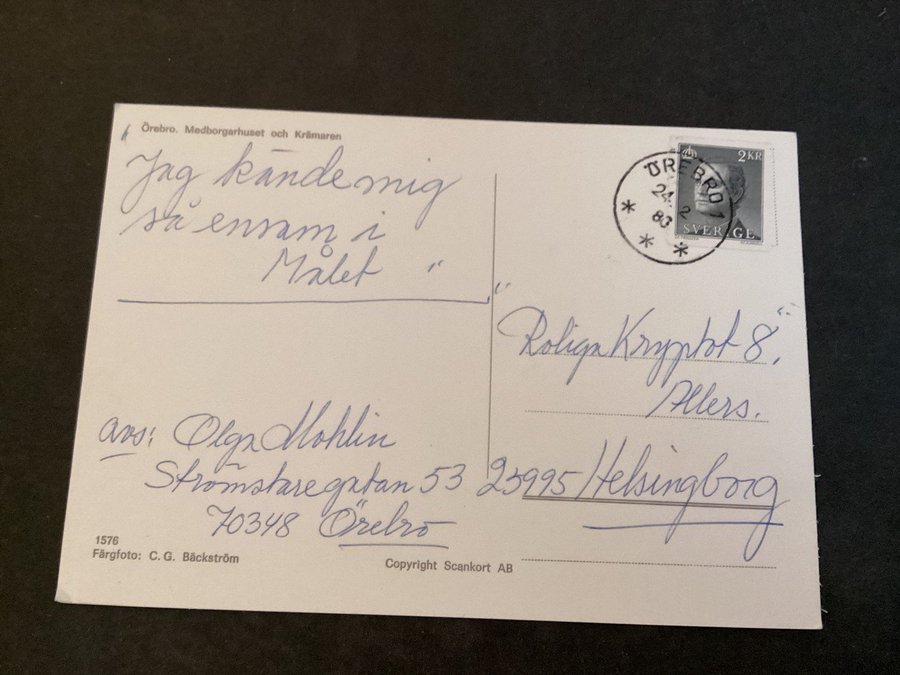 Örebro. Medborgarhuset och Krämaren
"Jag kände mig
så ensam i
Målet"
avs: Olga Mohlin
Strömstaregatan 53
70348 Örebro
1576
Färgfoto: C. G. Bäckström
Copyright Scankort AB
2 KR
SVERIGE
ÖREBRO 1
24 2
83
"Roliga Kryptot 8."
Allers.
25995 Helsingborg